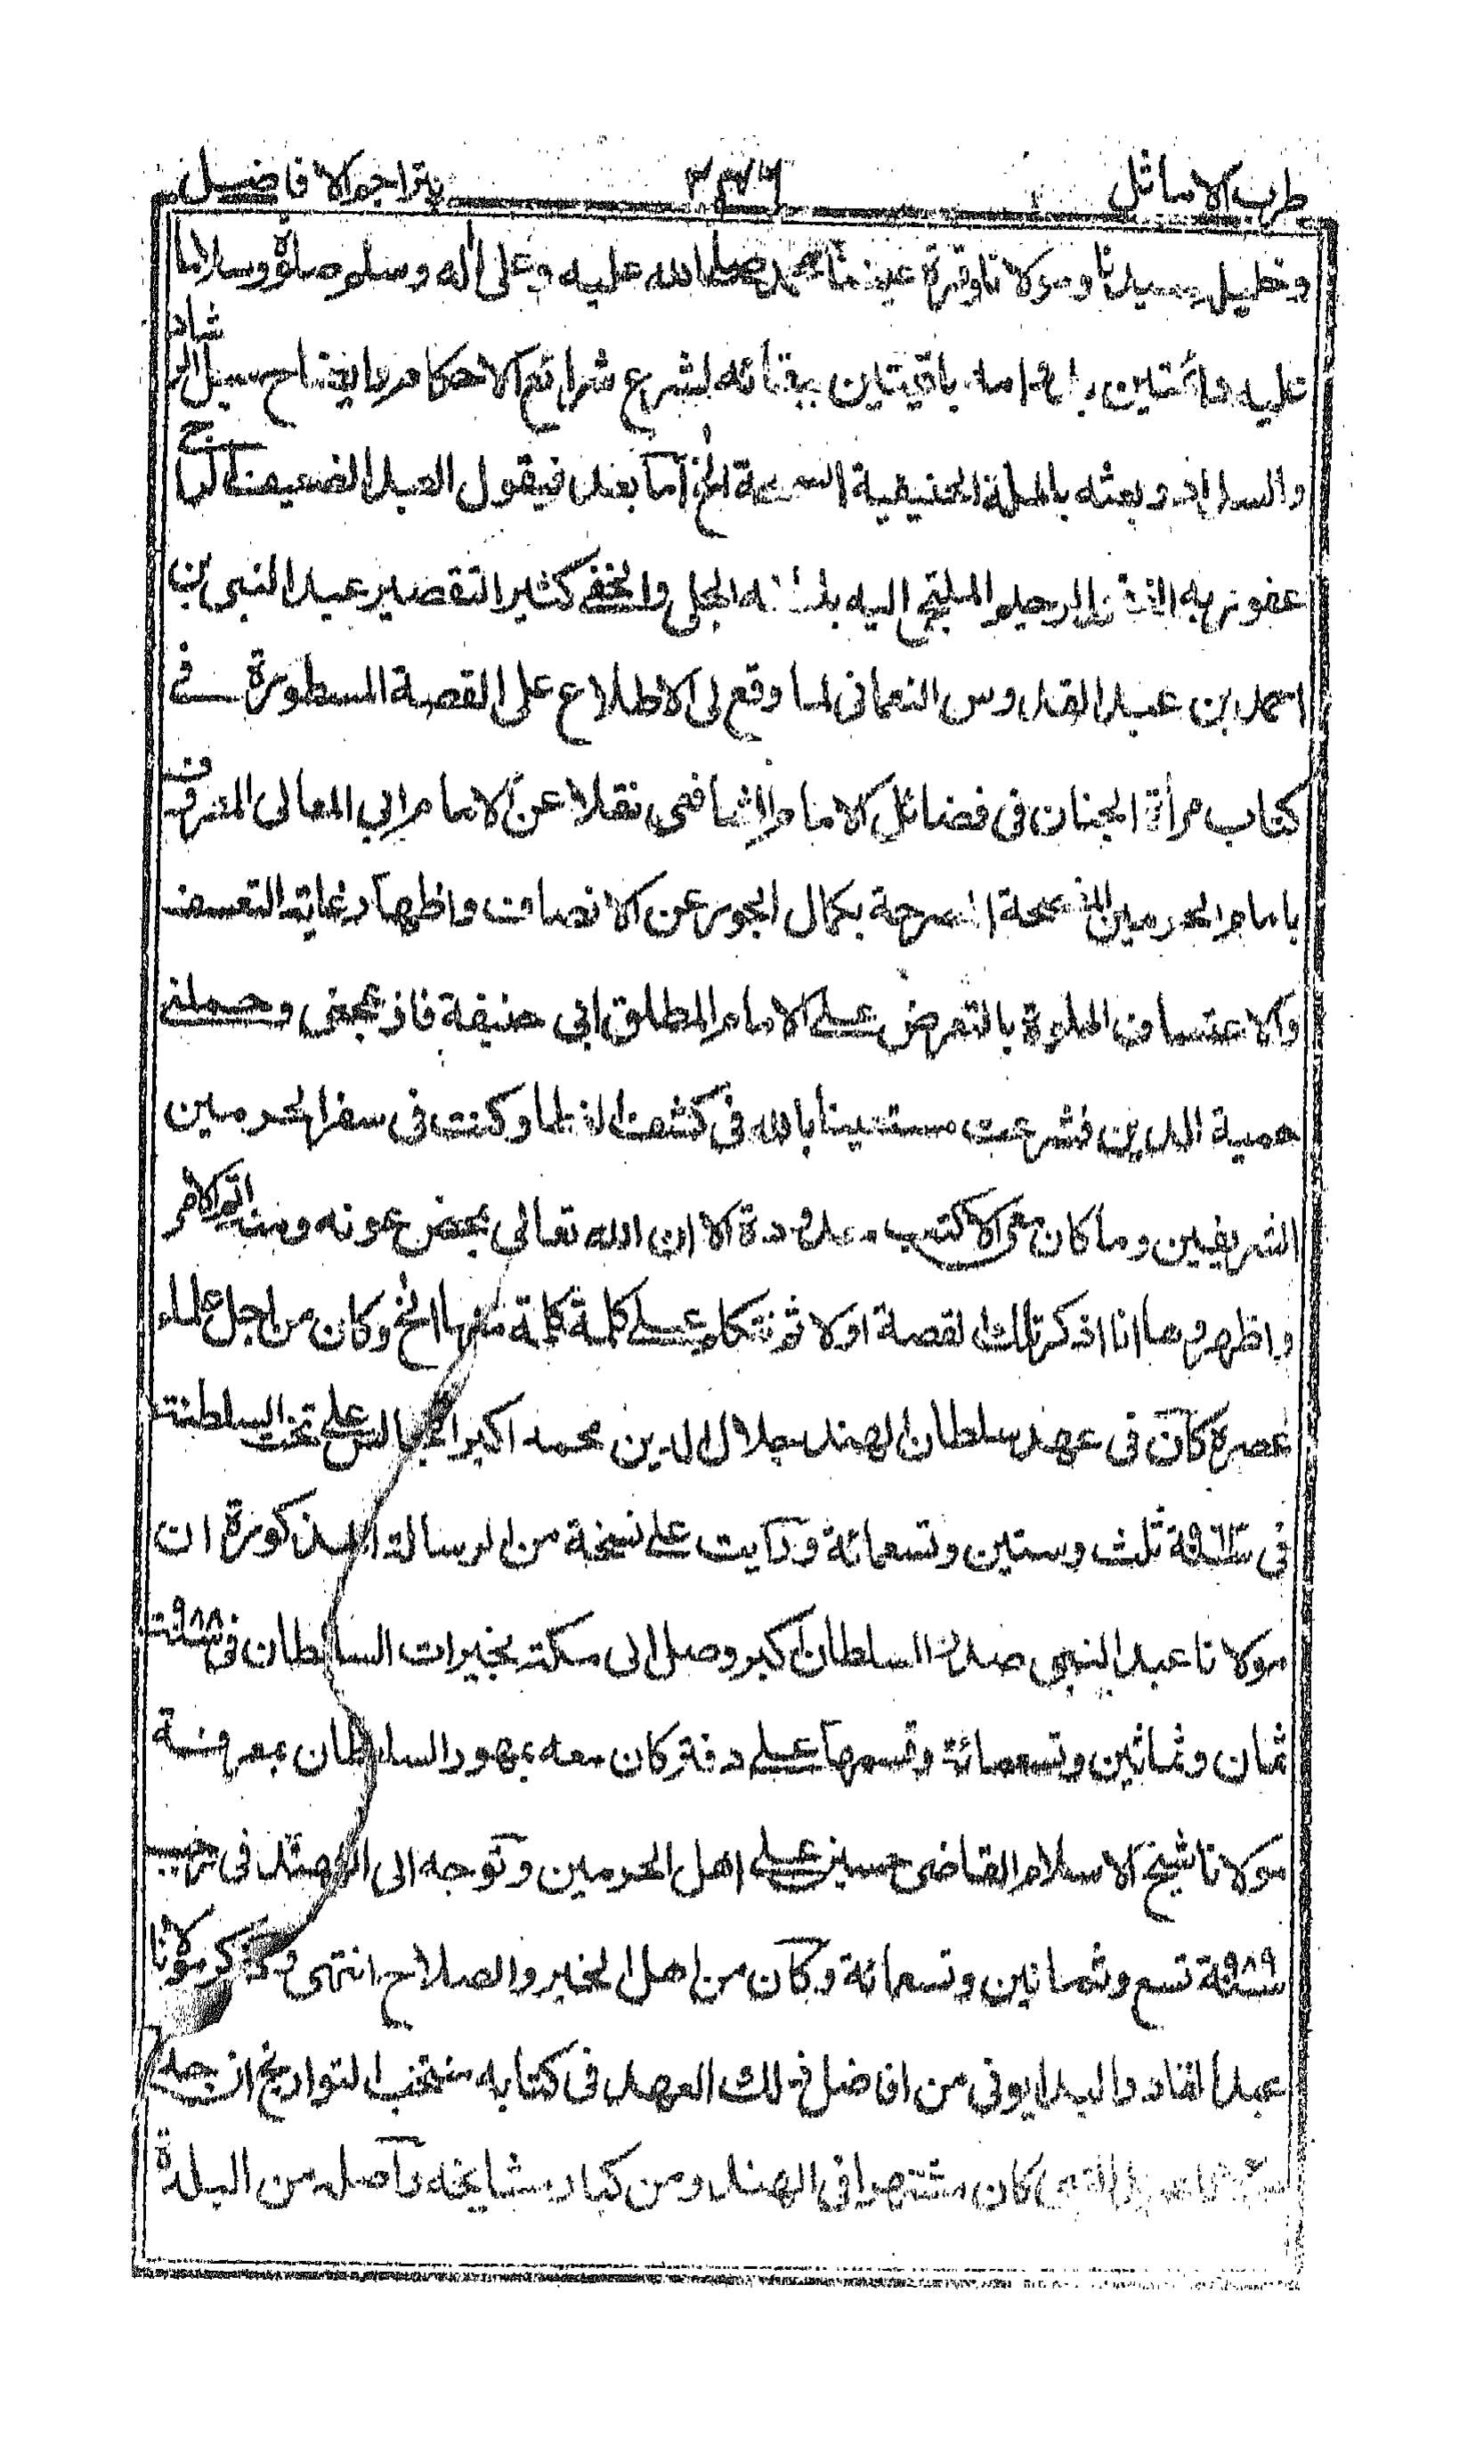 طرب الاماثل ٢٣٦ بتراجم الافاضل
وخليل سيدنا ومولانا وقرة عيننا محمد صلى الله عليه وعلى آله وسلم صلاة وسلاما
عليه دائمتين باقيتين ببقائه لشرع شرائع الاحكام وايضاح سبيل الرشاد
والسداد وبعثه بالملة الحنيفية السمحة الخ اما بعد فيقول العبد الضعيف الراجي
عفو ربه الرحيم الملتجئ اليه الجلي والخفي كثير التقصير عبد النبي بن
احمد بن عبد القدوس النعماني لما وقع لى الاطلاع على القصة المسطورة في
كتاب مرأة الجنان فى فضائل الامام الشافعى نقلا عن الامام ابي المعالى المعروف
بامام الحرمين المصرحة بكمال الجور عن الانصاف واظهار غاية التعسف
والاعتساف المملوة بالتعرض على الامام المطلق ابي حنيفة فازعجنى وحملنى
حمية الدين فشرعت مستعينا بالله فى كشف الغطا وكنت فى سفر الحرمين
الشريفين وما كان معى الا كتب معدودة الا ان الله تعالى بمحض عونه ومنه اتم الامر
واظهر وها انا اذكر تلك القصة اولا ثم نتكلم على كلمة كلمة منها الخ وكان من اجل علماء
عصره كان فى عهد سلطان الهند جلال الدين محمد اكبر الجالس على تخت السلطنة
فى سنة ٩٦٣ ثلث وستين وتسعمائة ورايت على نسخة من الرسالة المذكورة ان
مولانا عبد النبى صدر السلطان اكبر وصل الى مكة بخيرات السلطان فى سنة ٩٨٨
ثمان وثمانين وتسعمائة وقسمها على دفتر كان معه بمهور السلطان بمعرفة
مولانا شيخ الاسلام القاضى حسين على اهل الحرمين وتوجه الى الهند فى رجب
سنة ٩٨٩ تسع وثمانين وتسعمائة وكان من اهل الخير والصلاح انتهى وذكر مولانا
عبد القادر البدايونى من افاضل ذلك العهد فى كتابه منتخب التواريخ ان جده
كان مشتهرا فى الهند ومن كبار مشايخه واصله من البلدة